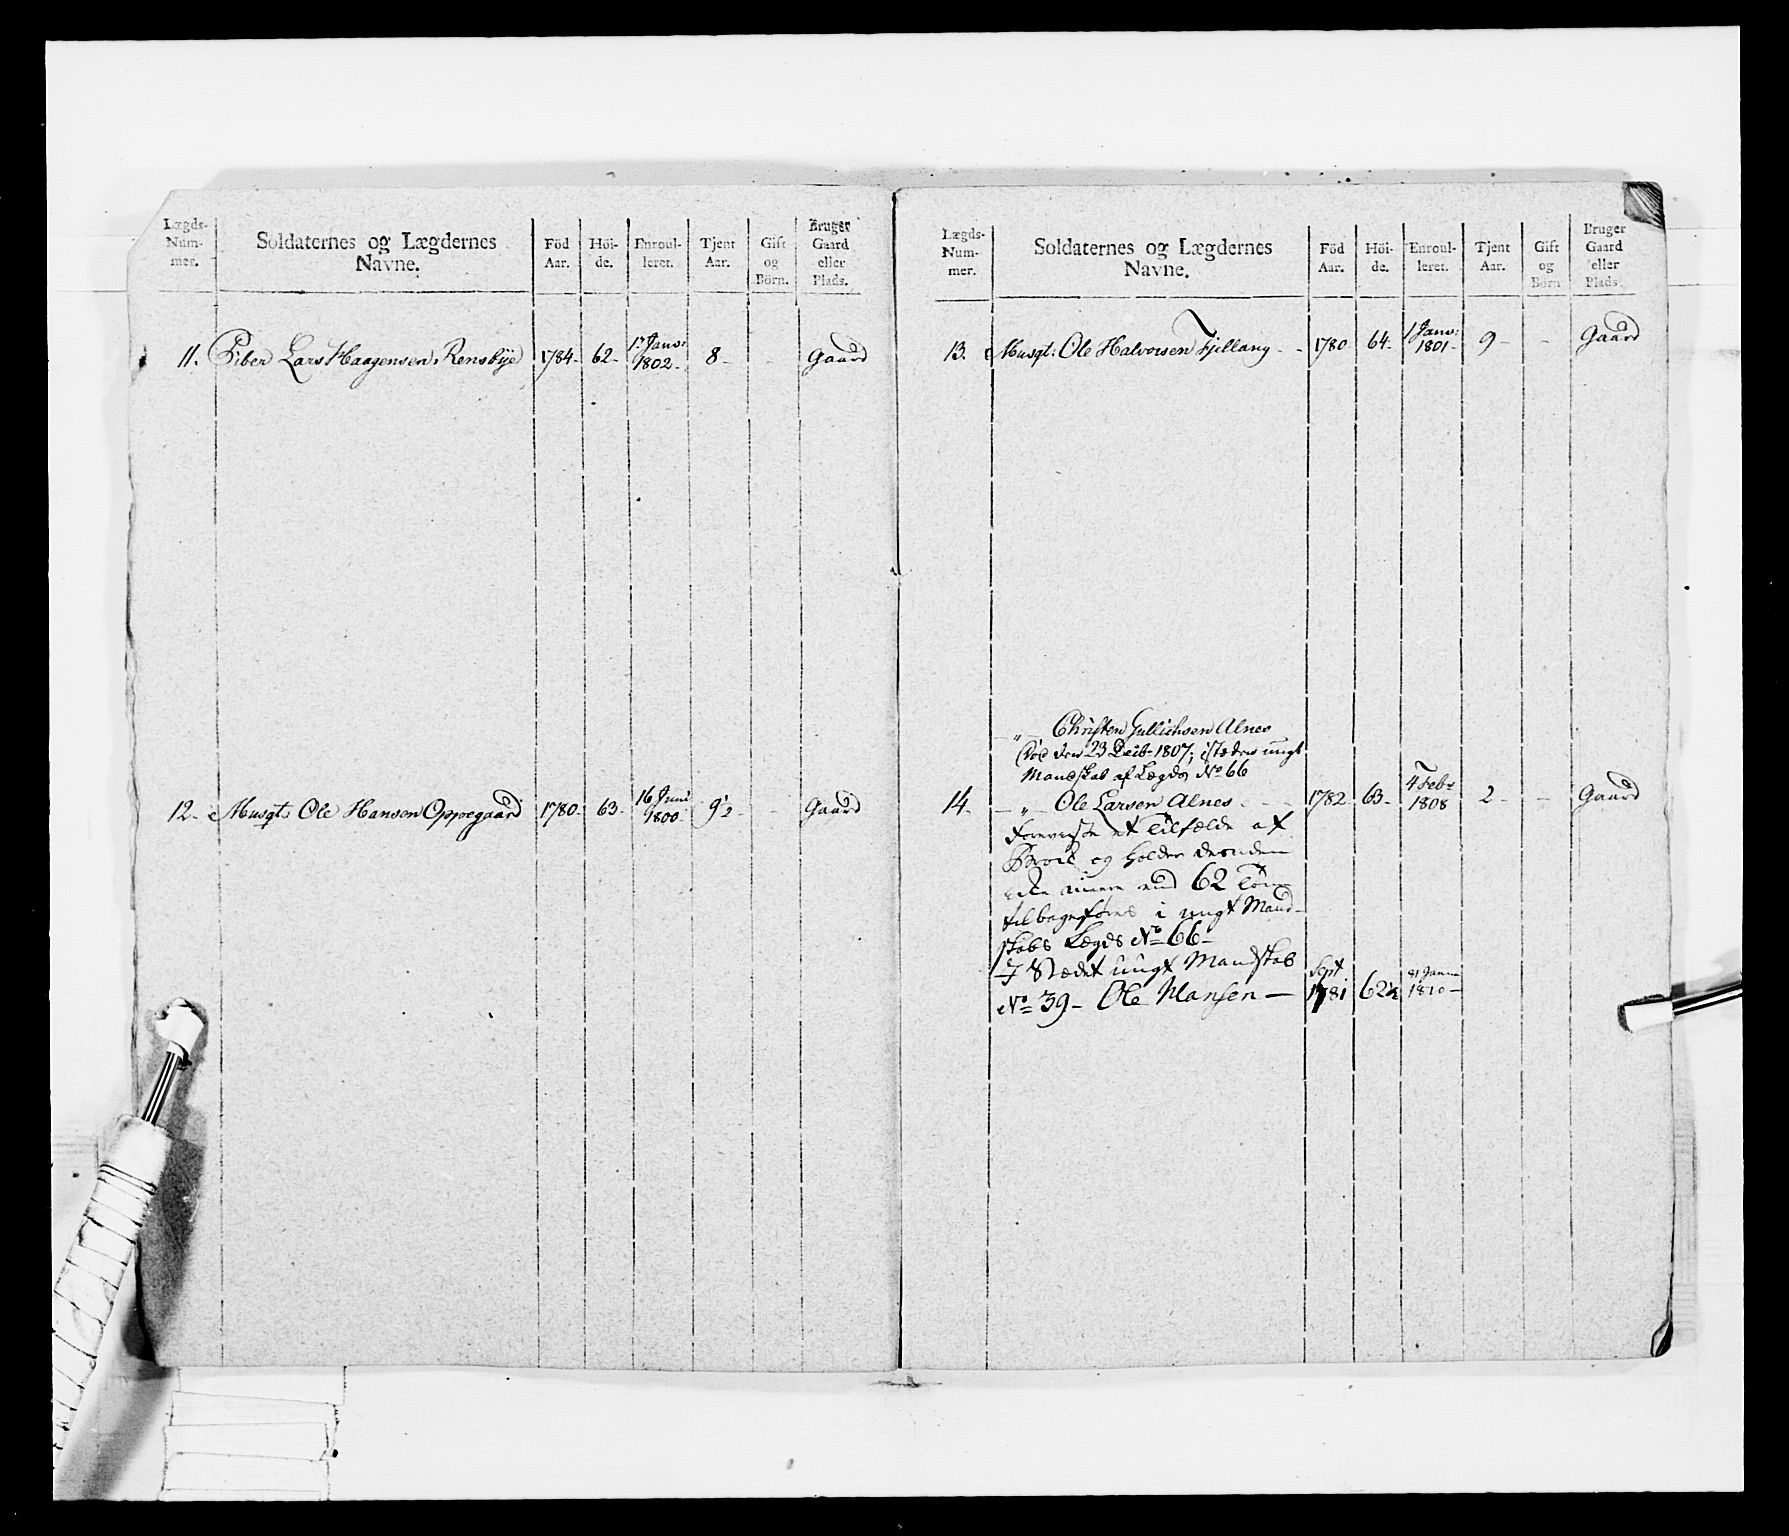 Lægds-
Num-
mer.
Soldaternes og Lægdernes
Navne.
Föd
Aar.
Höi-
de.
Enroul-
leret.
Tjent
Aar.
Gift
og
Börn.
Bruger
Gaard
eller
Plads.
11. Piber Lars Haagensen Rensbye 1784- 62- 1. Janv: 1802- 8- - Gaard
12. Musqt: Ole Hansen Oppegaard 1780- 63- 16 Juni 1800 9½- - Gaard
Lægds-
Num-
mer.
Soldaternes og Lægdernes
Navne.
Föd
Aar.
Höi-
de.
Enroul-
leret.
Tjent
Aar.
Gift
og
Börn
Bruger
Gaard
eller
Plads.
13. Musqt: Ole Halvorsen Fjellang - - 1780 64- 1 Janv: 1801- 9- - Gaard
— „ — Christen Gullichsen Alnes
Död den 23 Decb 1807; istæden ungt
Mandskab af Lægds No 66
14. — „ — Ole Larsen Alnes - - - 1782 63- 4 Febr 1808 2- - Gaard
et Tilfælde af
Brok og holder desuden
62
tilbageföres i ungt Mand-
skabs Lægds No 66-
I Stædet ungt Mandskab
No 39- Ole Hansen — Sept 1781 62½ 31 Janu 1810-